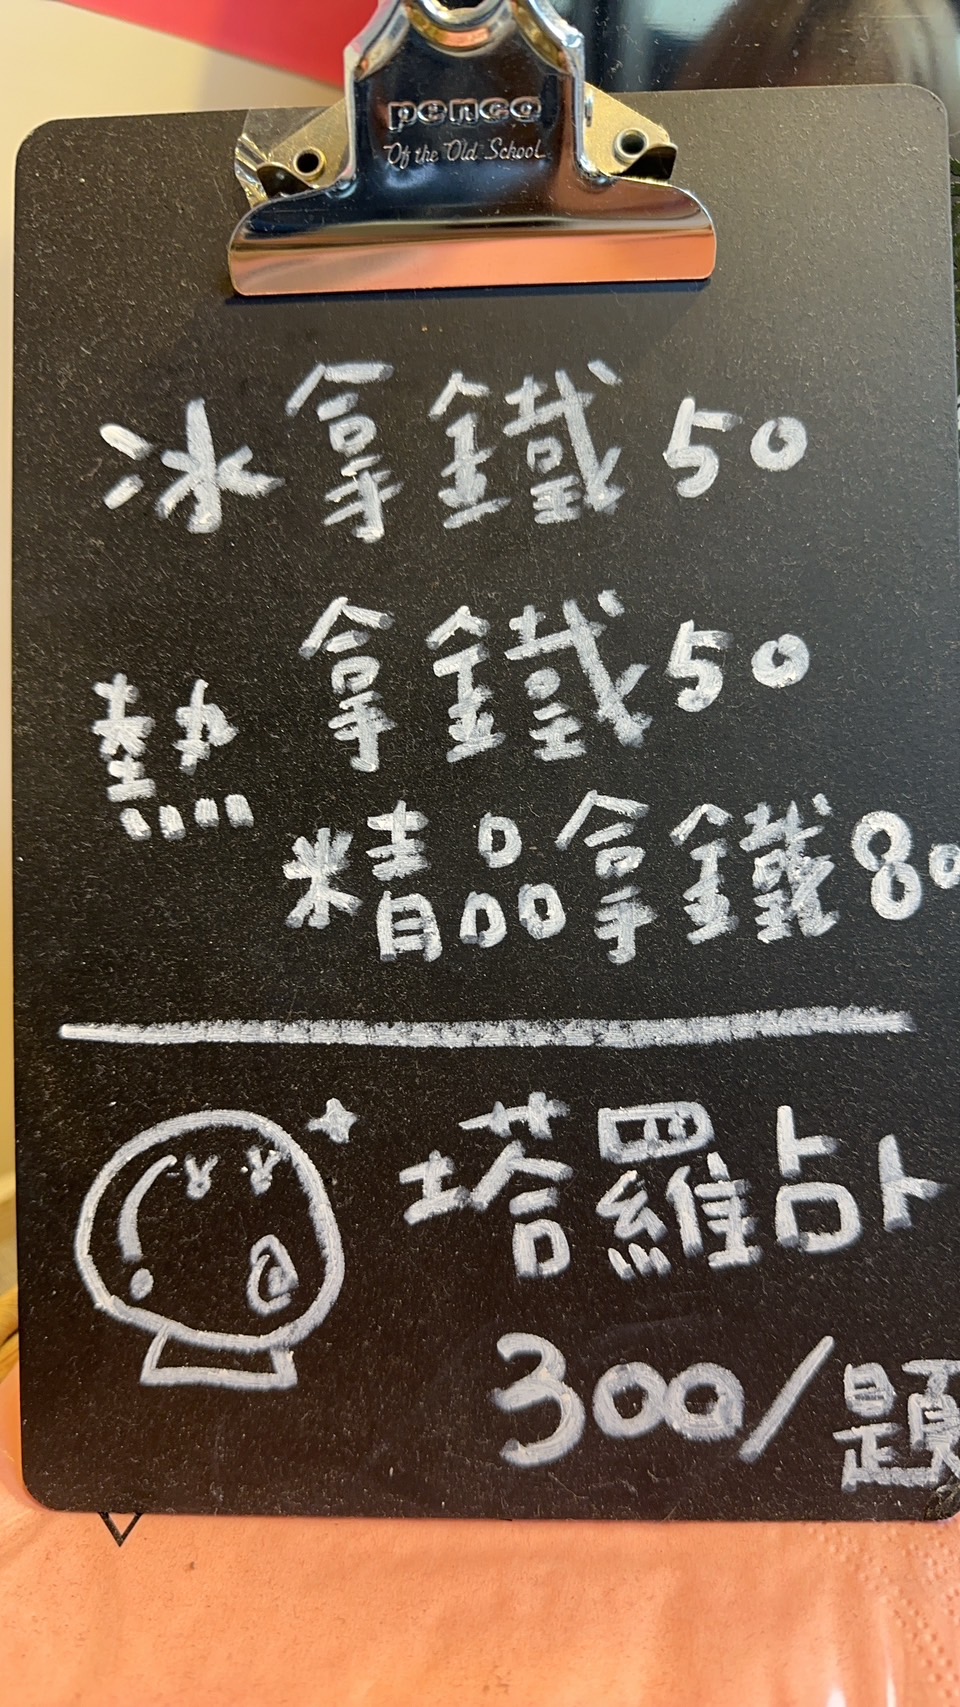 penco
Of the Old School
冰拿鐵50
熱拿鐵50
精品拿鐵80
塔羅占卜
300/題